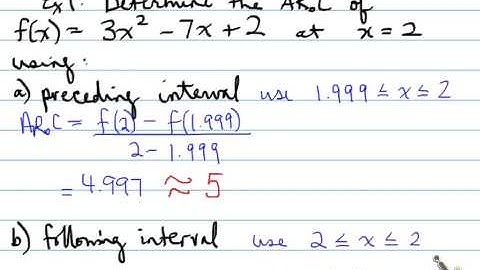 Ex 1: Determine the ARoC of
f(x) = 3x² - 7x + 2 at x = 2
using:
a) preceding interval use 1.999 ≤ x ≤ 2
ARoC = f(2) - f(1.999)
2 - 1.999
= 4.997 ≈ 5
b) following interval use 2 ≤ x ≤ 2